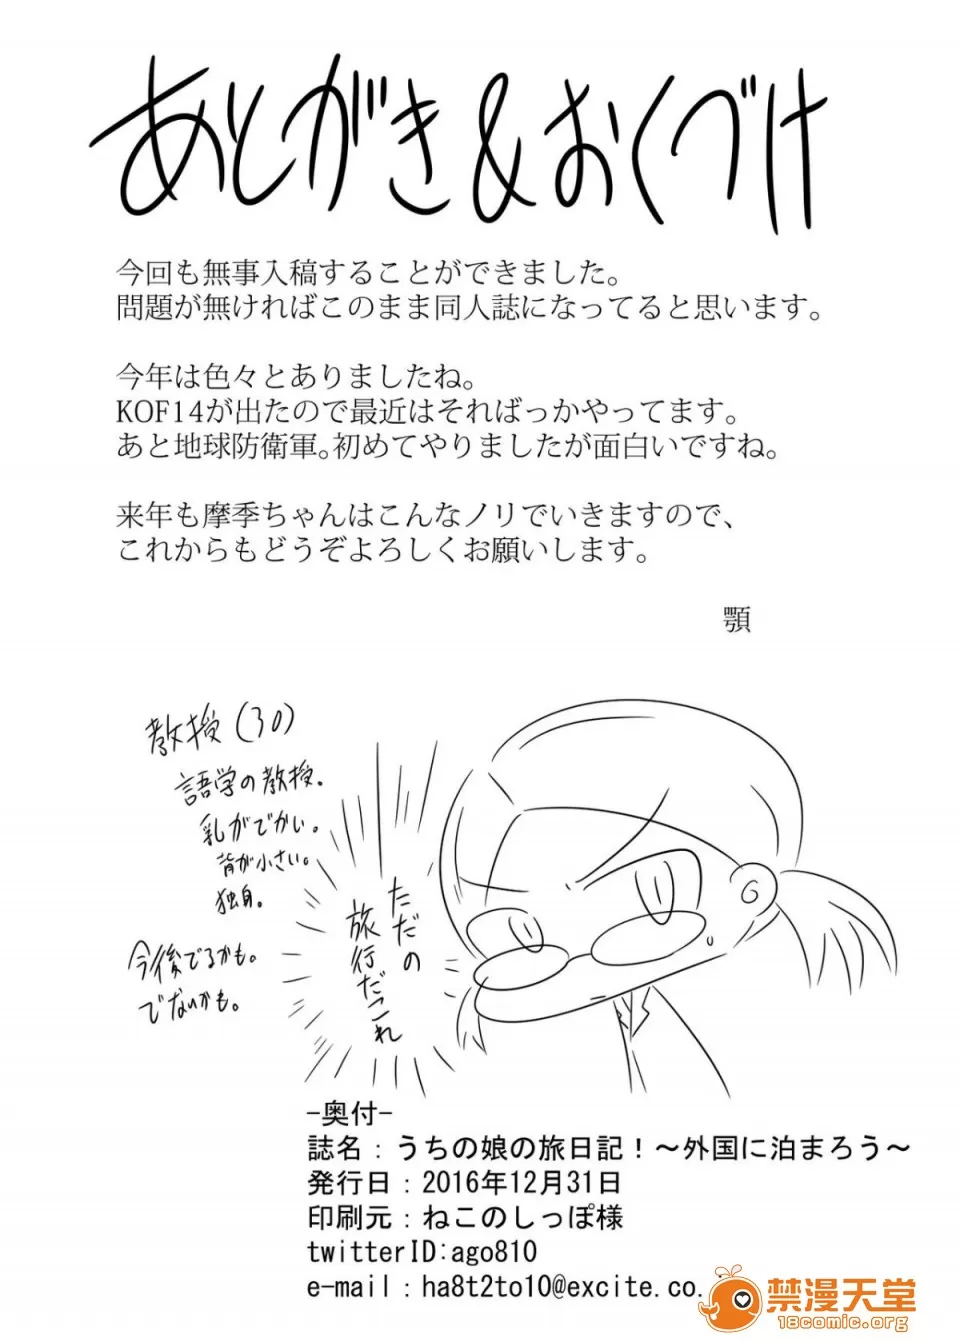 あとがき&おくづけ
今回も無事入稿することができました。
問題が無ければこのまま同人誌になってると思います。
今年は色々とありましたね。
KOF14が出たので最近はそればっかやってます。
あと地球防衛軍。初めてやりましたが面白いですね。
来年も摩季ちゃんはこんなノリでいきますので、
これからもどうぞよろしくお願いします。
顎
教授(30)
語学の教授.
乳がでかい。
背が小さい。
独身。
今後でるかも。
でないかも。
ただの
旅行だこれ
-奥付-
誌名：うちの娘の旅日記！～外国に泊まろう～
発行日：2016年12月31日
印刷元：ねこのしっぽ様
twitterID:ago810
e-mail：ha8t2to10@excite.co.
禁漫天堂
18comic.org